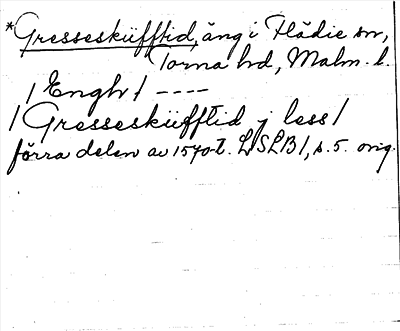 *Gressesküfftid, äng i Flädie sn,
Torna hd, Malm. l.
/ Engh / ----
/ Gressesküfftid j less /
förra delen av 1570-t. LSLB 1, s. 5. orig.